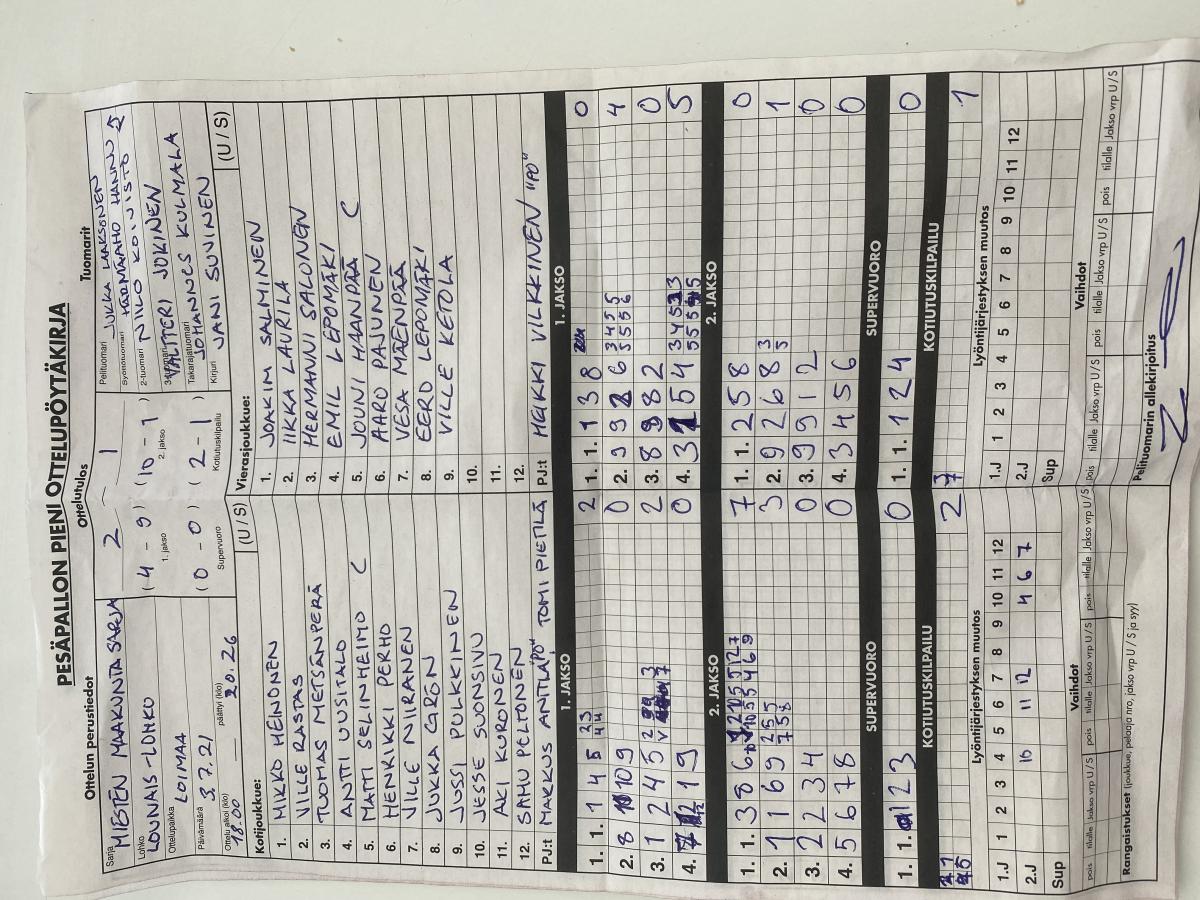 PESÄPALLON PIENI OTTELUPÖYTÄKIRJA
Ottelun perustiedot
Sarja MIESTEN MAAKUNTASARJA
Lohko LOUNAIS-LOHKO
Ottelupaikka LOIMAA
Päivämäärä 3.7.21
Ottelu alkoi (klo) 18.00 päättyi (klo) 20.26
Ottelutulos
2 - 1
(4 - 9) (10 - 1)
1. jakso 2. jakso
(0 - 0) (2 - 1)
Supervuoro Kotiutuskilpailu
Tuomarit
Pelituomari JUKKA LAAKSONEN
Syöttötuomari HARMAAHO HANNU
2-tuomari NIILO KOIVISTO
3-tuomari VALTTERI JOKINEN
Takarajatuomari JOHANNES KULMALA
Kirjuri JANI SUNINEN
Kotijoukkue: (U / S)
1. MIKKO HEINONEN
2. VILLE RASTAS
3. TUOMAS METSÄNPERÄ
4. ANTTI UUSITALO
5. MATTI SELINHEIMO C
6. HENRIKKI PERHO
7. VILLE NIIRANEN
8. JUKKA GRÖN
9. JUSSI PULKKINEN
10. JESSE SUONSIVU
11. AKI KURONEN
12. SAMU PELTONEN
PJ:t MAKUS ANITLA "PO" TOMI PIETILÄ
Vierasjoukkue: (U / S)
1. JOAKIM SALMINEN
2. IIKKA LAURILA
3. HERMANNI SALONEN
4. EMIL LEPOMÄKI
5. JOUNI HAANPÄÄ C
6. AARO PAJUNEN
7. VESA MÄENPÄÄ
8. EERO LEPOMÄKI
9. VILLE KETOLA
10.
11.
12.
PJ:t HEIKKI VILKKINEN "PO"
1. JAKSO
1. 1. 1 4 5 2
2. 8 10 9 0
3. 1 2 4 5 2
4. 1 9 0
1. JAKSO
1. 1. 1 3 8 0
2. 9 6 4
3. 8 8 2 0
4. 3 5 4 5
2. JAKSO
1. 1. 3 8 6 7
2. 1 1 6 9 3
3. 2 2 3 4 0
4. 5 6 7 8 0
2. JAKSO
1. 1. 2 5 8 0
2. 9 2 6 8 1
3. 9 9 1 2 0
4. 3 4 5 6 0
SUPERVUORO
1. 1. 1 2 3 0
SUPERVUORO
1. 1. 1 2 4 0
KOTIUTUSKILPAILU
2
KOTIUTUSKILPAILU
3
7
1
Lyöntijärjestyksen muutos
1 2 3 4 5 6 7 8 9 10 11 12
1.J
2.J 10 11 12 4 6 7
Sup
Lyöntijärjestyksen muutos
1 2 3 4 5 6 7 8 9 10 11 12
1.J
2.J
Sup
Vaihdot
pois tilalle Jakso vrp U / S pois tilalle Jakso vrp U / S pois tilalle Jakso vrp U / S
Vaihdot
pois tilalle Jakso vrp U / S pois tilalle Jakso vrp U / S pois tilalle Jakso vrp U / S
Rangaistukset (joukkue, pelaaja nro, jakso vrp U / S ja syy)
Pelituomarin allekirjoitus